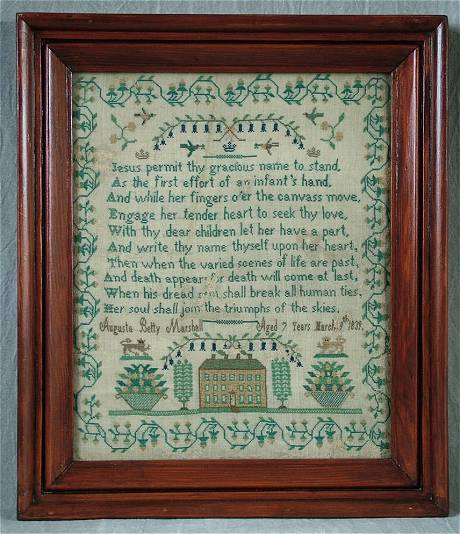 Jesus permit thy gracious name to stand,
As the first effort of an infant's hand,
And while her fingers o'er the canvass move,
Engage her tender heart to seek thy love,
With thy dear children let her have a part,
And write thy name thyself upon her heart,
Then when the varied scenes of life are past,
And death appear for death will come at last,
When his dread shall break all human ties,
Her soul shall join the triumphs of the skies,
Augusta Betty Marshall Aged 7 Years March 1839.